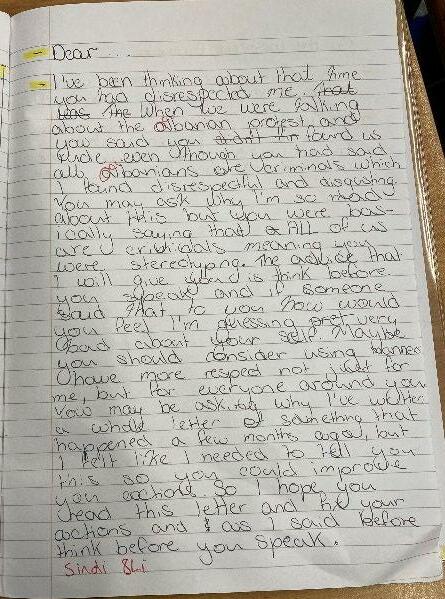 - Dear ....
- I've been thinking about that time
you had disrespected me. that
was the when we were talking
about the albanian protest and
you said you didn't found us
rude. even though you had said
all albanians are criminals which
I found disrespectful and disgusting.
You may ask why I'm so mad
about this but you were bas-
ically saying that ALL of us
are criminals meaning you
were stereotyping. The advice that
I will give you is think before
you speak and if someone
said that to you how would
you feel I'm guessing pret very
bad about your self. Maybe
you should consider using manners
have more respect not just for
me, but for everyone around you
You may be asking why I've written
a whole letter of something that
happened a few months ago, but
I felt like I needed to tell you
this so you could improve
you actions. So I hope you
read this letter and fix your
actions and as I said before
think before you speak.
Sindi